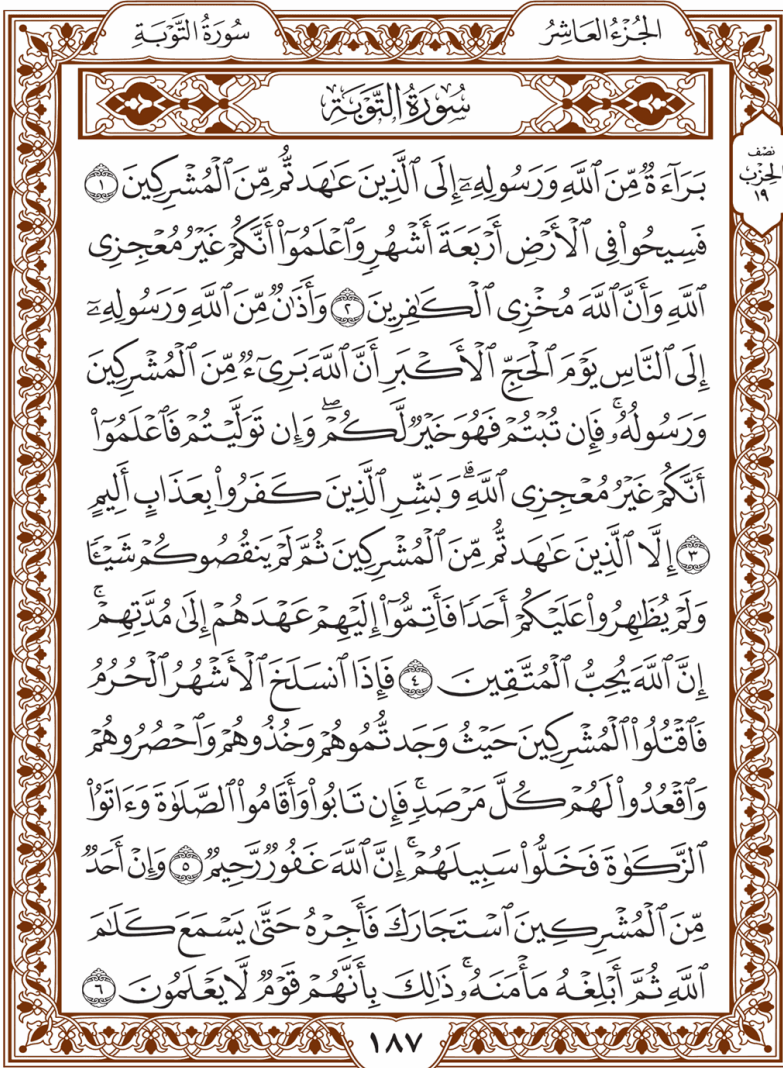 سُورَةُ التَّوۡبَةِ
الجُزْءُ العَاشِرُ
سُورَةُ التَّوۡبَةِ
نصف
الحزب
١٩
بَرَآءَةٞ مِّنَ ٱللَّهِ وَرَسُولِهِۦٓ إِلَى ٱلَّذِينَ عَٰهَدتُّم مِّنَ ٱلۡمُشۡرِكِينَ ١
فَسِيحُواْ فِي ٱلۡأَرۡضِ أَرۡبَعَةَ أَشۡهُرٖ وَٱعۡلَمُوٓاْ أَنَّكُمۡ غَيۡرُ مُعۡجِزِي
ٱللَّهِ وَأَنَّ ٱللَّهَ مُخۡزِي ٱلۡكَٰفِرِينَ ٢ وَأَذَٰنٞ مِّنَ ٱللَّهِ وَرَسُولِهِۦٓ
إِلَى ٱلنَّاسِ يَوۡمَ ٱلۡحَجِّ ٱلۡأَكۡبَرِ أَنَّ ٱللَّهَ بَرِيٓءٞ مِّنَ ٱلۡمُشۡرِكِينَ
وَرَسُولُهُۥۚ فَإِن تُبۡتُمۡ فَهُوَ خَيۡرٞ لَّكُمۡۖ وَإِن تَوَلَّيۡتُمۡ فَٱعۡلَمُوٓاْ
أَنَّكُمۡ غَيۡرُ مُعۡجِزِي ٱللَّهِۗ وَبَشِّرِ ٱلَّذِينَ كَفَرُواْ بِعَذَابٍ أَلِيمٍ
٣ إِلَّا ٱلَّذِينَ عَٰهَدتُّم مِّنَ ٱلۡمُشۡرِكِينَ ثُمَّ لَمۡ يَنقُصُوكُمۡ شَيۡـٔٗا
وَلَمۡ يُظَٰهِرُواْ عَلَيۡكُمۡ أَحَدٗا فَأَتِمُّوٓاْ إِلَيۡهِمۡ عَهۡدَهُمۡ إِلَىٰ مُدَّتِهِمۡۚ
إِنَّ ٱللَّهَ يُحِبُّ ٱلۡمُتَّقِينَ ٤ فَإِذَا ٱنسَلَخَ ٱلۡأَشۡهُرُ ٱلۡحُرُمُ
فَٱقۡتُلُواْ ٱلۡمُشۡرِكِينَ حَيۡثُ وَجَدتُّمُوهُمۡ وَخُذُوهُمۡ وَٱحۡصُرُوهُمۡ
وَٱقۡعُدُواْ لَهُمۡ كُلَّ مَرۡصَدٖۚ فَإِن تَابُواْ وَأَقَامُواْ ٱلصَّلَوٰةَ وَءَاتَوُاْ
ٱلزَّكَوٰةَ فَخَلُّواْ سَبِيلَهُمۡۚ إِنَّ ٱللَّهَ غَفُورٞ رَّحِيمٞ ٥ وَإِنۡ أَحَدٞ
مِّنَ ٱلۡمُشۡرِكِينَ ٱسۡتَجَارَكَ فَأَجِرۡهُ حَتَّىٰ يَسۡمَعَ كَلَٰمَ
ٱللَّهِ ثُمَّ أَبۡلِغۡهُ مَأۡمَنَهُۥۚ ذَٰلِكَ بِأَنَّهُمۡ قَوۡمٞ لَّا يَعۡلَمُونَ ٦
١٨٧